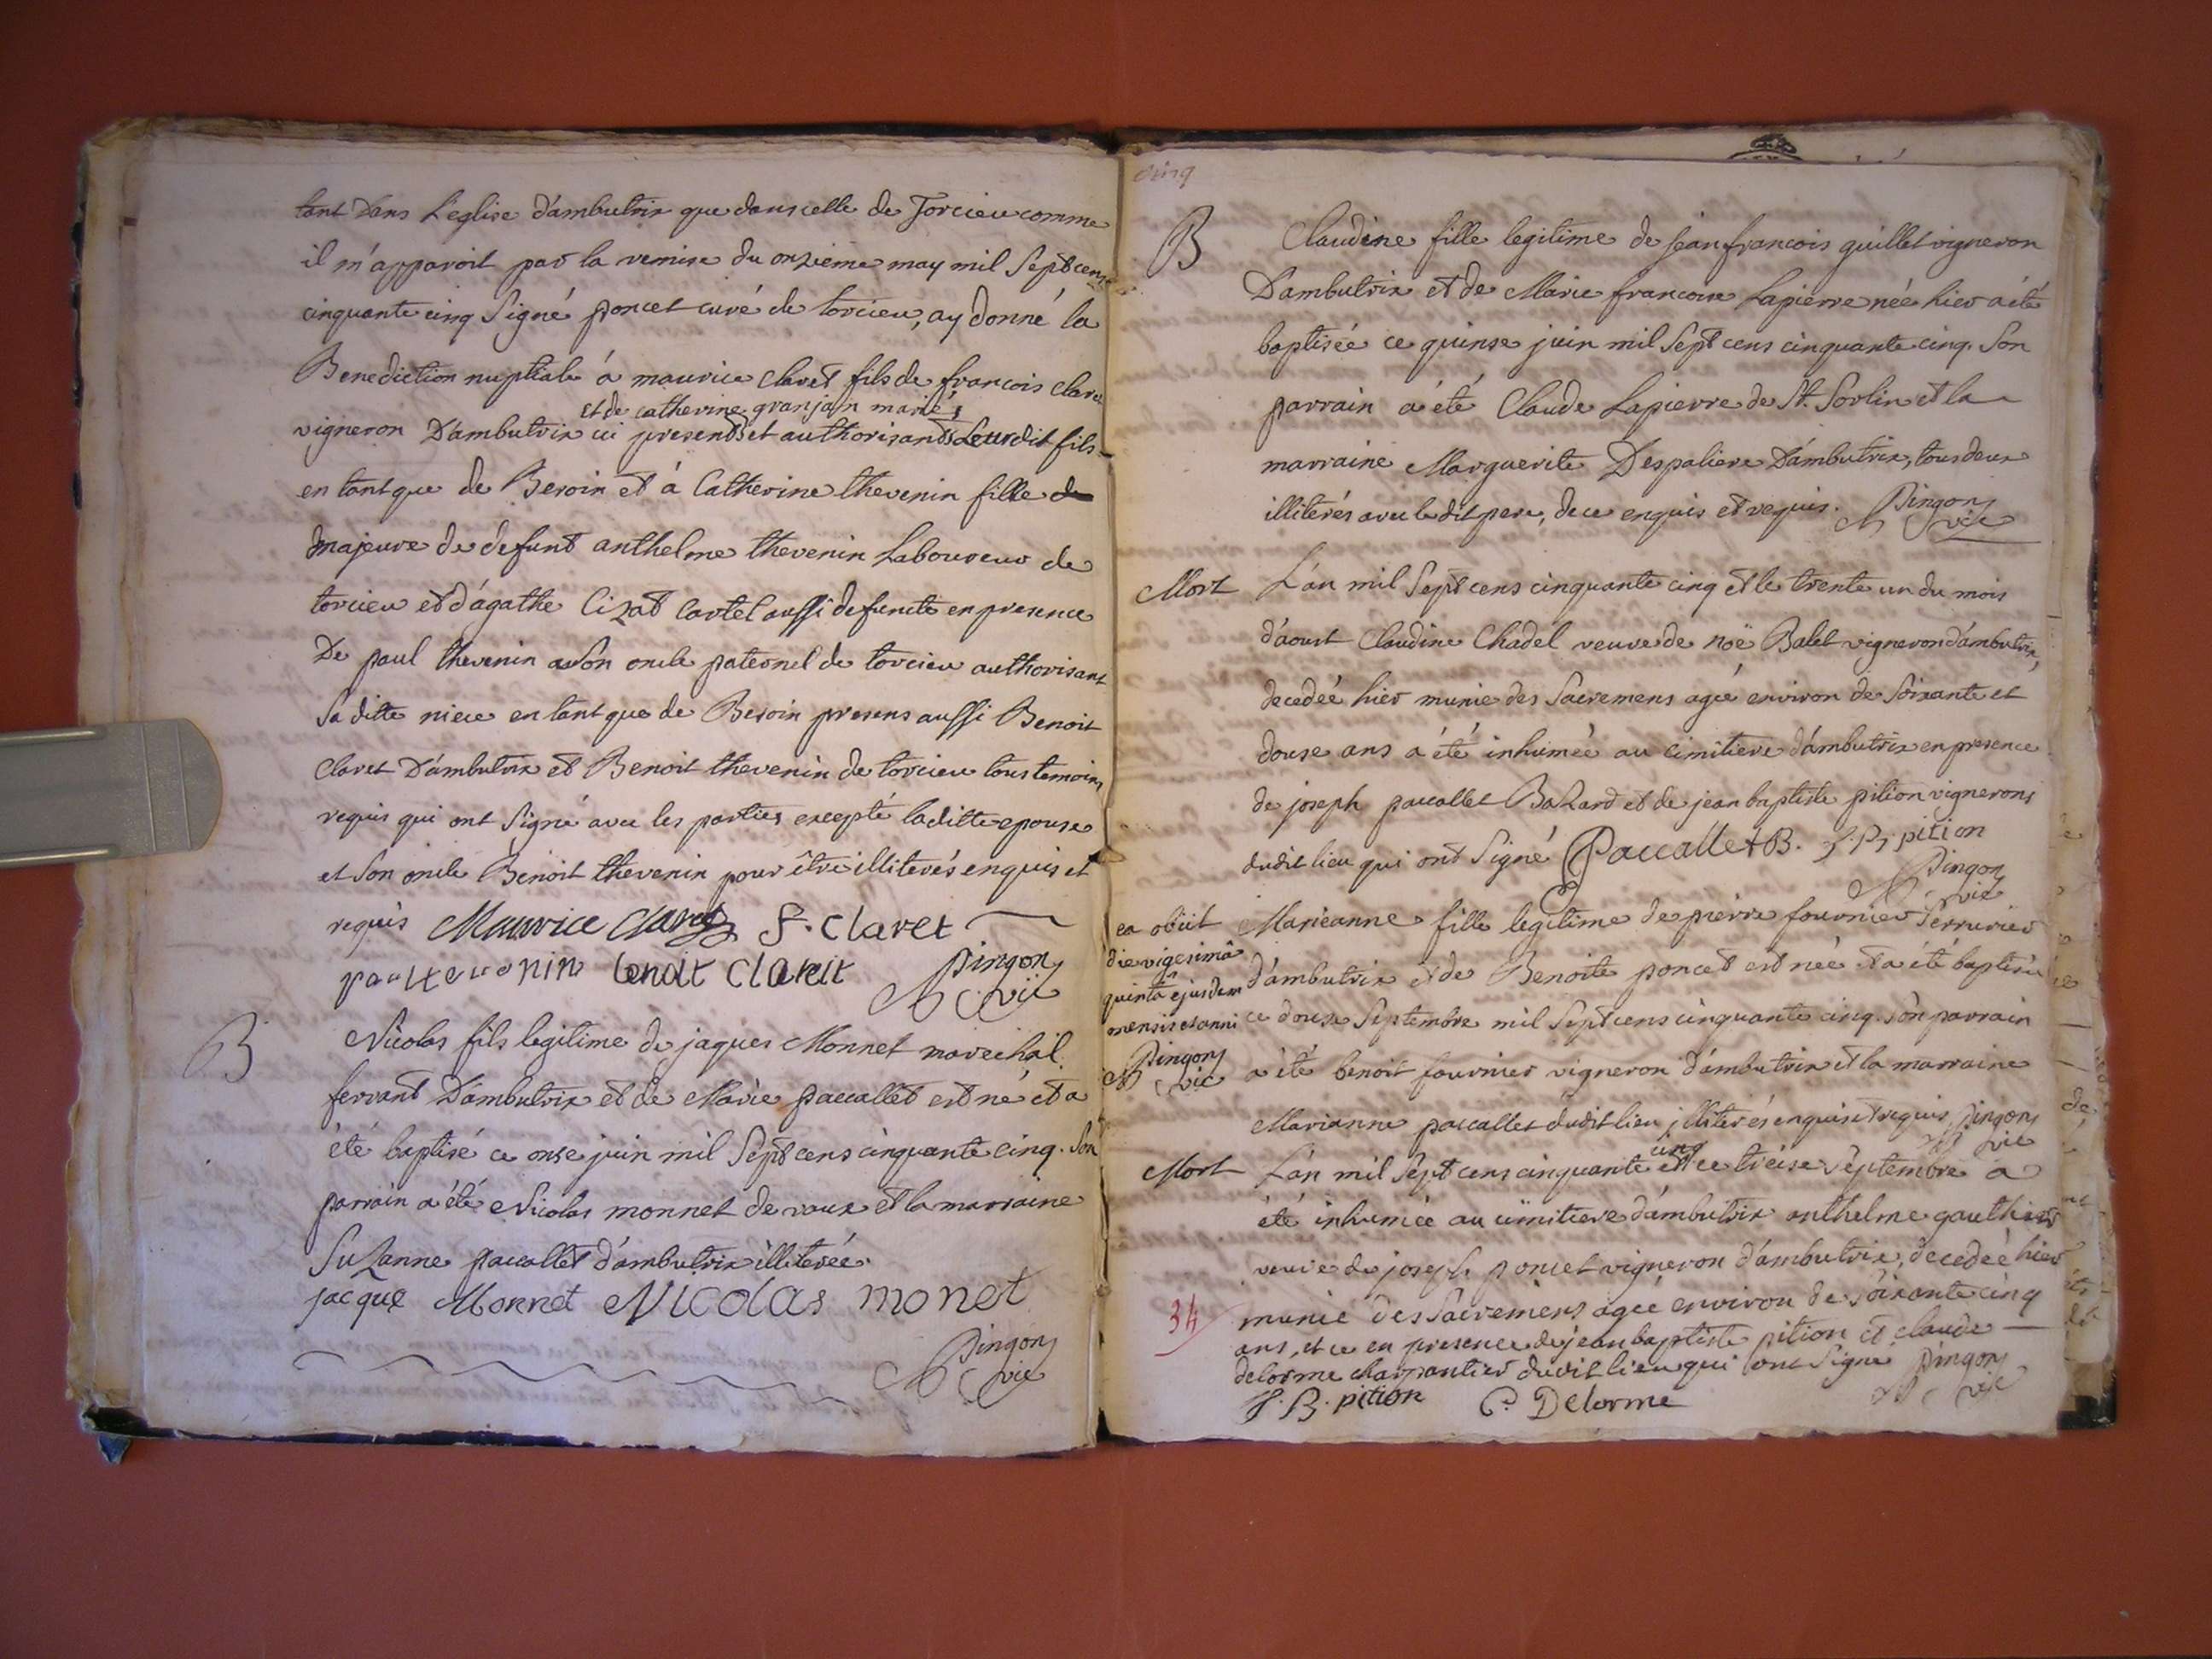 tant dans L'eglise d'ambutrix que dans celle de Torcieu comme
il m'apparoit par la remise du onzieme may mil Sept cens
cinquante cinq Signé poncet curé de torcieu, ay donné la
Benediction nuptiale á maurice claret fils de francois claret
et de catherine granjan mariés
vigneron D'ambutrix ici presents et authorisants Leurdit fils
en tant que de Besoin et á Catherine thevenin fille de
majeure de défunt anthelme thevenin Laboureur de
torcieu et d'ágathe Cizat Cartel aussi defuncte en presence
De paul thevenin Son oncle paternel de torcieu authorisant
Sa ditte niece en tant que de Besoin presens aussi Benoit
Claret D'ambutrix et Benoit thevenin de torcieu tous temoins
requis qui ont Signé avec les parties excepté laditte epouse
et Son oncle Benoit thevenin pour être illiterés enquis et
requis Maurice Claret F. Claret
paul tevenin benoit Claret Pingon
vic
B Nicolas fils legitime de jaques Monnet marechal
ferrant D'ambutrix et de Marie paccallet est né et a
été baptisé ce onse juin mil Sept cens cinquante cinq. Son
parrain a été Nicolas monnet de vaux et la marraine
Suzanne paccallet d'ambutrix illiterée.
jacque Monnet Nicolas monet
Pingon
vic
cinq
B Claudine fille legitime de jean francois guillet vigneron
D'ambutrix et de Marie francoise Lapierre née hier a été
baptisée ce quinse juin mil Sept cens cinquante cinq. Son
parrain a été Claude Lapierre de St. Sorlin et la
marraine Marguerite Despaliere D'ambutrix, tous deux
illiterés avec le dit pere, de ce enquis et requis. Pingon
vic
Mort L'an mil Sept cens cinquante cinq et le trente un du mois
d'aoust Claudine Chadel veuve de noë Balet vigneron d'ambutrix,
decedeé hier munie des Sacremens ageé environ de Soixante et
douse ans a été inhumée au cimitiere d'ambutrix en presence
de joseph paccallet Bazard et de jean baptiste pition vignerons
dudit lieu qui ont Signé Paccallet B. J. B. pition
Pingon
vic
ea obiit
die vigesimâ
quintâ ejusdem
mensis et anni
Pingon
vic
Marieanne fille legitime de pierre fournier Serrurier
d'ambutrix et de Benoite poncet est née et a été baptisée
ce douse Septembre mil Sept cens cinquante cinq. Son parrain
a été benoit fournier vigneron d'ambutrix et la marraine
Marianne paccallet dudit lieu illiterés enquis et requis Pingon
vic
cinq
Mort L'an mil Sept cens cinquante et ce treise Septembre a
été inhumée au cimitiere d'ambutrix anthelme gauthier
veuve de joseph poncet vigneron d'ambutrix, decedeé hier
munie des Sacremens agée environ de Soixante cinq
34
ans, et ce en presence de jean baptiste pition et claude
delorme charpantier dudit lieu qui ont Signé Pingon
vic
J. B. pition C. Delorme